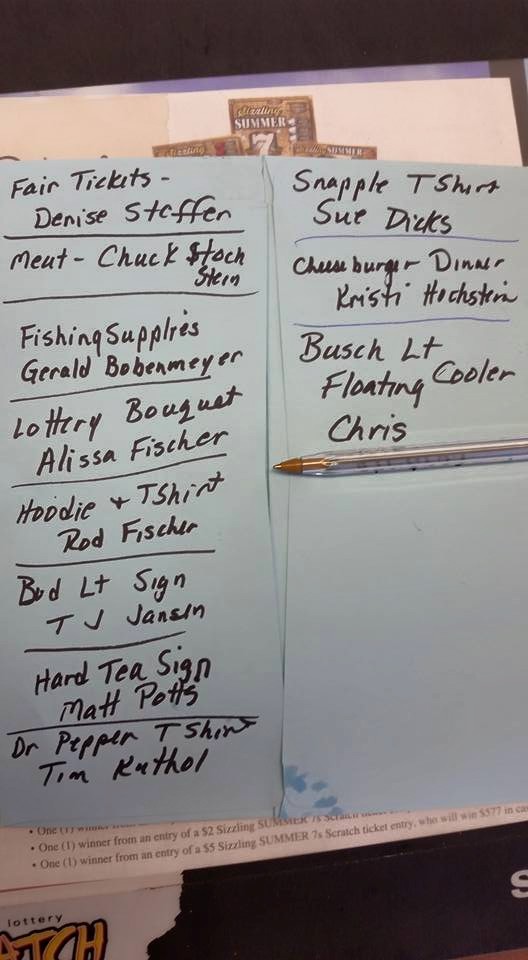 Sizzling
SUMMER
7
Sizzling
SUMMER
Fair Tickets -
Denise Steffen
Meat - Chuck Stoch
Stein
Fishing Supplies
Gerald Bobenmeyer
Lottery Bouquet
Alissa Fischer
Hoodie + TShirt
Rod Fischer
Bud Lt Sign
T J Jansen
Hard Tea Sign
Matt Potts
Dr Pepper T Shirt
Tim Kathol
Snapple T Shirt
Sue Dicks
Cheeseburger Dinner
Kristi Hochstein
Busch Lt
Floating Cooler
Chris
• One (1) winner from an entry of a $2 Sizzling SUMMER 7s Scratch ticket entry, who will win $577 in
• One (1) winner from an entry of a $5 Sizzling SUMMER 7s Scratch ticket
lottery